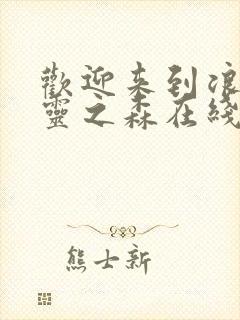 歡迎来到浪
靈之森在綫
熊士新